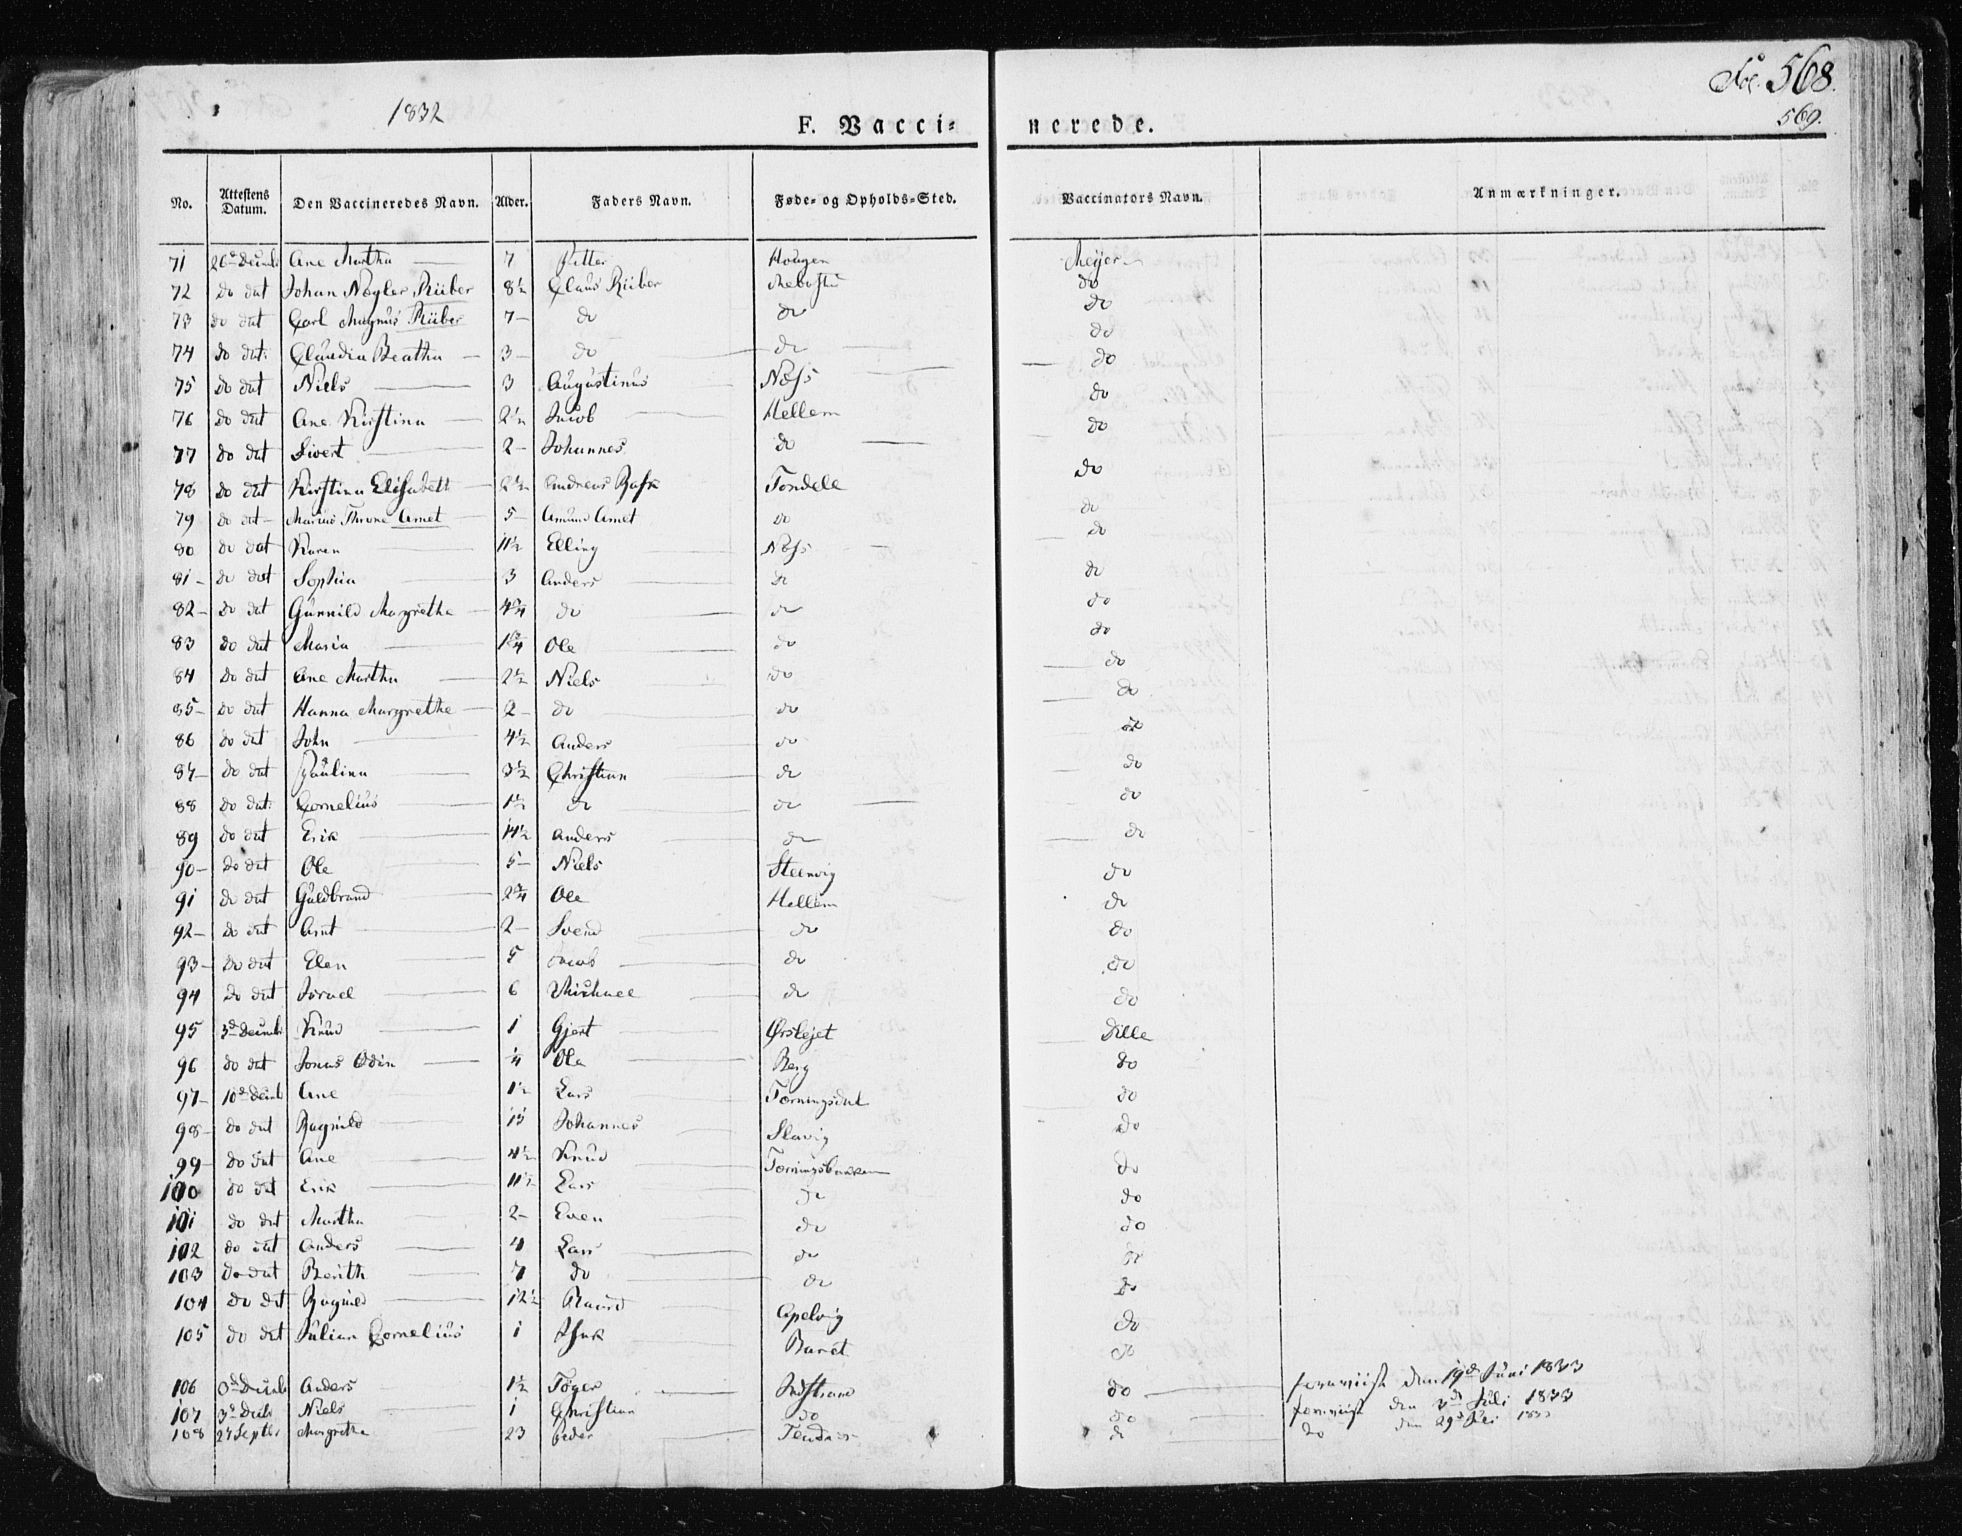 1832
F. Vacci= nerede.
Fol. 568.
569.
No. Attestens Datum. Den Vaccineredes Navn. Alder. Faders Navn. Føde- og Opholds-Sted. Vaccinators Navn. Anmærkninger.
71 26 Decemb Ane Martha 7 Petter Hougen Meyer
72 do dat Johan Nægler Rüber 8½ Claus Rüber do
73 do dat Carl Magnus Rüber 7 do do do
74 do dat: Claudia Beatha 3 do do do
75 do dat Niels 3 Augustinus Næss do
76 do dat Ane Kirstina 2½ Jacob Hellem do
77 do dat Sivert 2 Johannes do do
78 do dat Kirstina Elisabeth 2½ Andreas Tondele do
79 do dat Marius Throne Amet 5 Amund Amet do do
80 do dat Karen 11½ Elling Næss do
81 do dat Sophia 3 Anders do do
82 do dat Gunnild Margretha 4¾ do do do
83 do dat Maria 1¾ Ole do do
84 do dat Ane Martha 2½ Niels do do
85 do dat Hanna Margrethe 2 do do do
86 do dat John 4½ Anders do do
87 do dat Paulina 3½ Christian do do
88 do dat: Cornelius 1½ do do do
89 do dat Erik 14½ Anders do do
90 do dat Ole 5 Niels Steenvig do
91 do dat Guldbrand 2¾ Ole Hellem do
92 do dat Arnt 2 Svend do do
93 do dat Elen 5 Jacob do do
94 do dat Israel 6 Michael do do
95 3d Decemb Knud 1 Gjert Ørslejet Dille
96 do dat Jonas Odin ¼ Ole Berg do
97 10d Decemb Ane 1½ Lars Tørningsdal do
98 do dat Ragnild 13 Johannes Slavig do
99 do dat Ane 4½ Knud Tørningsbakken do
100 do dat Erik 11½ Lars do do
101 do dat Martha 2 Even do do
102 do dat Anders 4 Lars do do
103 do dat Berith 7 do do do
104 do dat Ragnild 12½ Baard Apelvig do
105 do dat Julian Cornelius 1 Isak do
106 Anders 1½ Indstrand do foreviist den 19d Juni 1833
107 3d Niels 1 Christian do do foreviist den 3d Juli 1833
108 27 Septbr Margretha 23 Peder do do den 29d